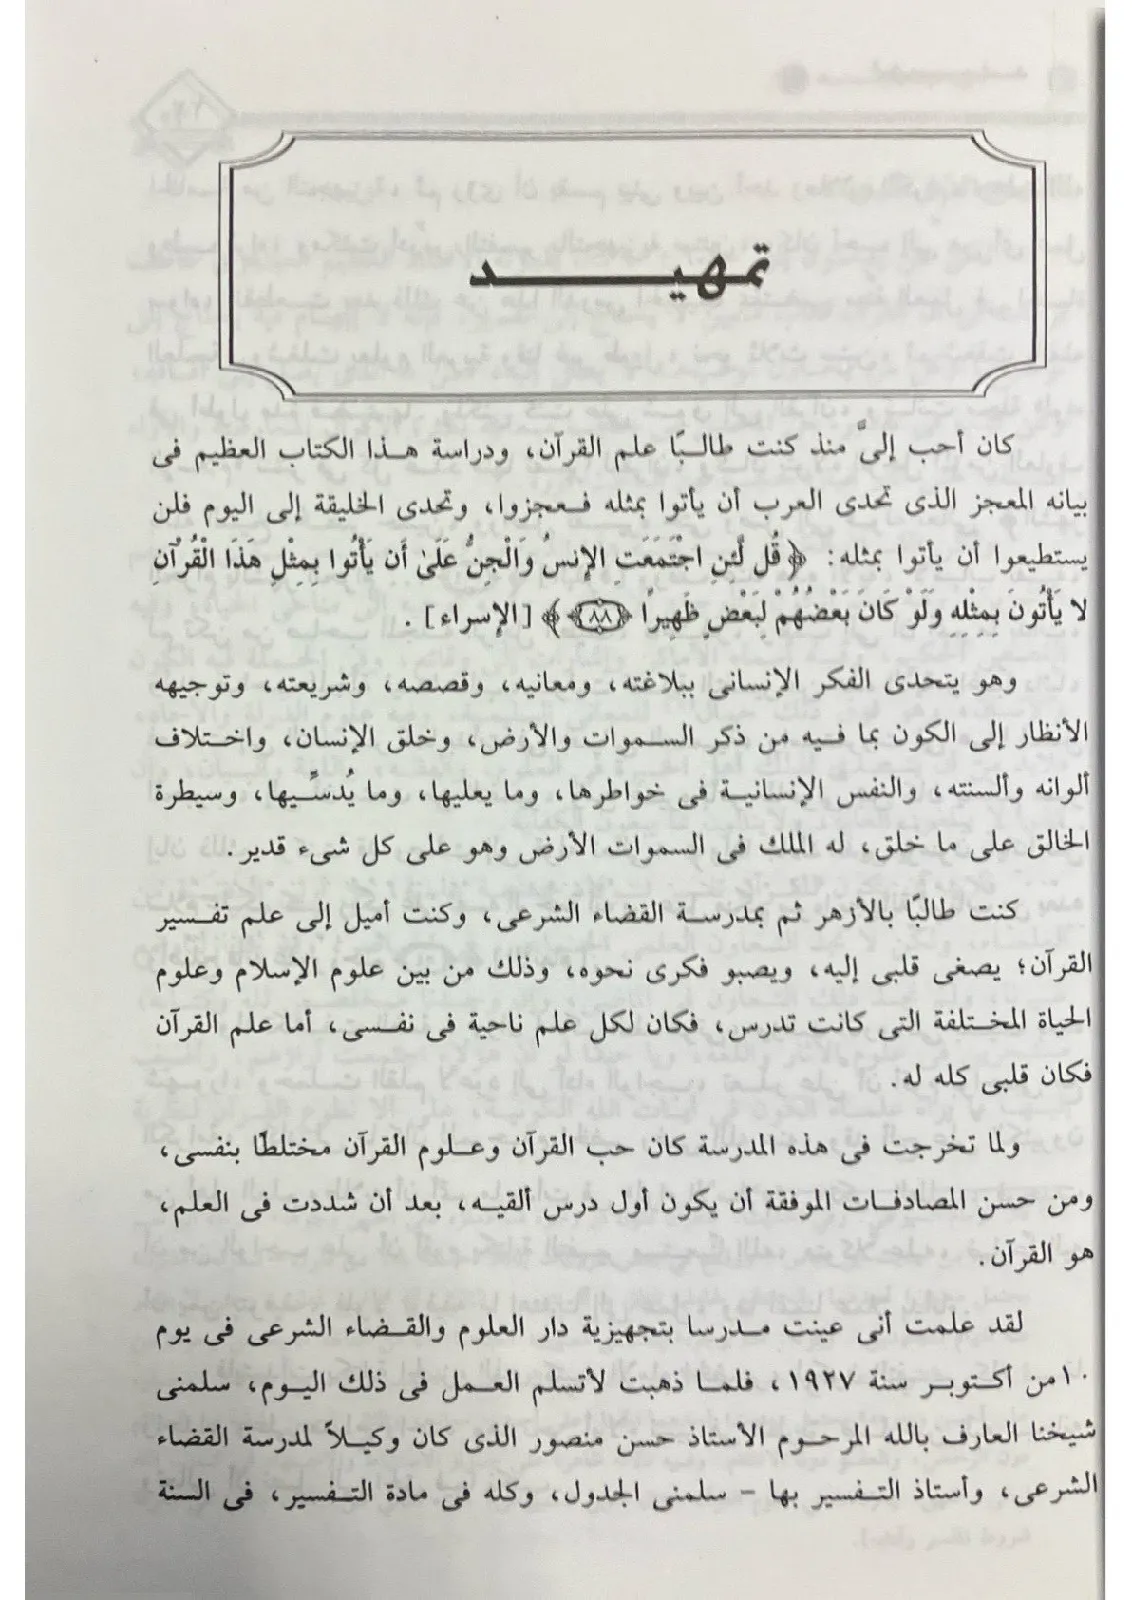 تمهيـــد
كان أحب إلىَّ منذ كنت طالبًا علم القرآن، ودراسة هذا الكتاب العظيم فى
بيانه المعجز الذى تحدى العرب أن يأتوا بمثله فعجزوا، وتحدى الخليقة إلى اليوم فلن
يستطيعوا أن يأتوا بمثله: ﴿قُل لَّئِنِ اجْتَمَعَتِ الإِنسُ وَالْجِنُّ عَلَىٰ أَن يَأْتُوا بِمِثْلِ هَذَا الْقُرْآنِ
لا يَأْتُونَ بِمِثْلِهِ وَلَوْ كَانَ بَعْضُهُمْ لِبَعْضٍ ظَهِيرًا ﴿٨٨﴾﴾ [الإسراء] .
وهو يتحدى الفكر الإنسانى ببلاغته، ومعانيه، وقصصه، وشريعته، وتوجيهه
الأنظار إلى الكون بما فيه من ذكر السموات والأرض، وخلق الإنسان، واختلاف
ألوانه وألسنته، والنفس الإنسانية فى خواطرها، وما يعليها، وما يُدسِّيها، وسيطرة
الخالق على ما خلق، له الملك فى السموات الأرض وهو على كل شىء قدير.
كنت طالبًا بالأزهر ثم بمدرسة القضاء الشرعى، وكنت أميل إلى علم تفسير
القرآن؛ يصغى قلبى إليه، ويصبو فكرى نحوه، وذلك من بين علوم الإسلام وعلوم
الحياة المختلفة التى كانت تدرس، فكان لكل علم ناحية فى نفسى، أما علم القرآن
فكان قلبى كله له.
ولما تخرجت فى هذه المدرسة كان حب القرآن وعلوم القرآن مختلطًا بنفسى،
ومن حسن المصادفات الموفقة أن يكون أول درس ألقيه، بعد أن شددت فى العلم،
هو القرآن.
لقد علمت أنى عينت مدرسا بتجهيزية دار العلوم والقضاء الشرعى فى يوم
١٠من أكتوبر سنة ١٩٢٧، فلما ذهبت لأتسلم العمل فى ذلك اليوم، سلمنى
شيخنا العارف بالله المرحوم الأستاذ حسن منصور الذى كان وكيلاً لمدرسة القضاء
الشرعى، وأستاذ التفسير بها - سلمنى الجدول، وكله فى مادة التفسير، فى السنة